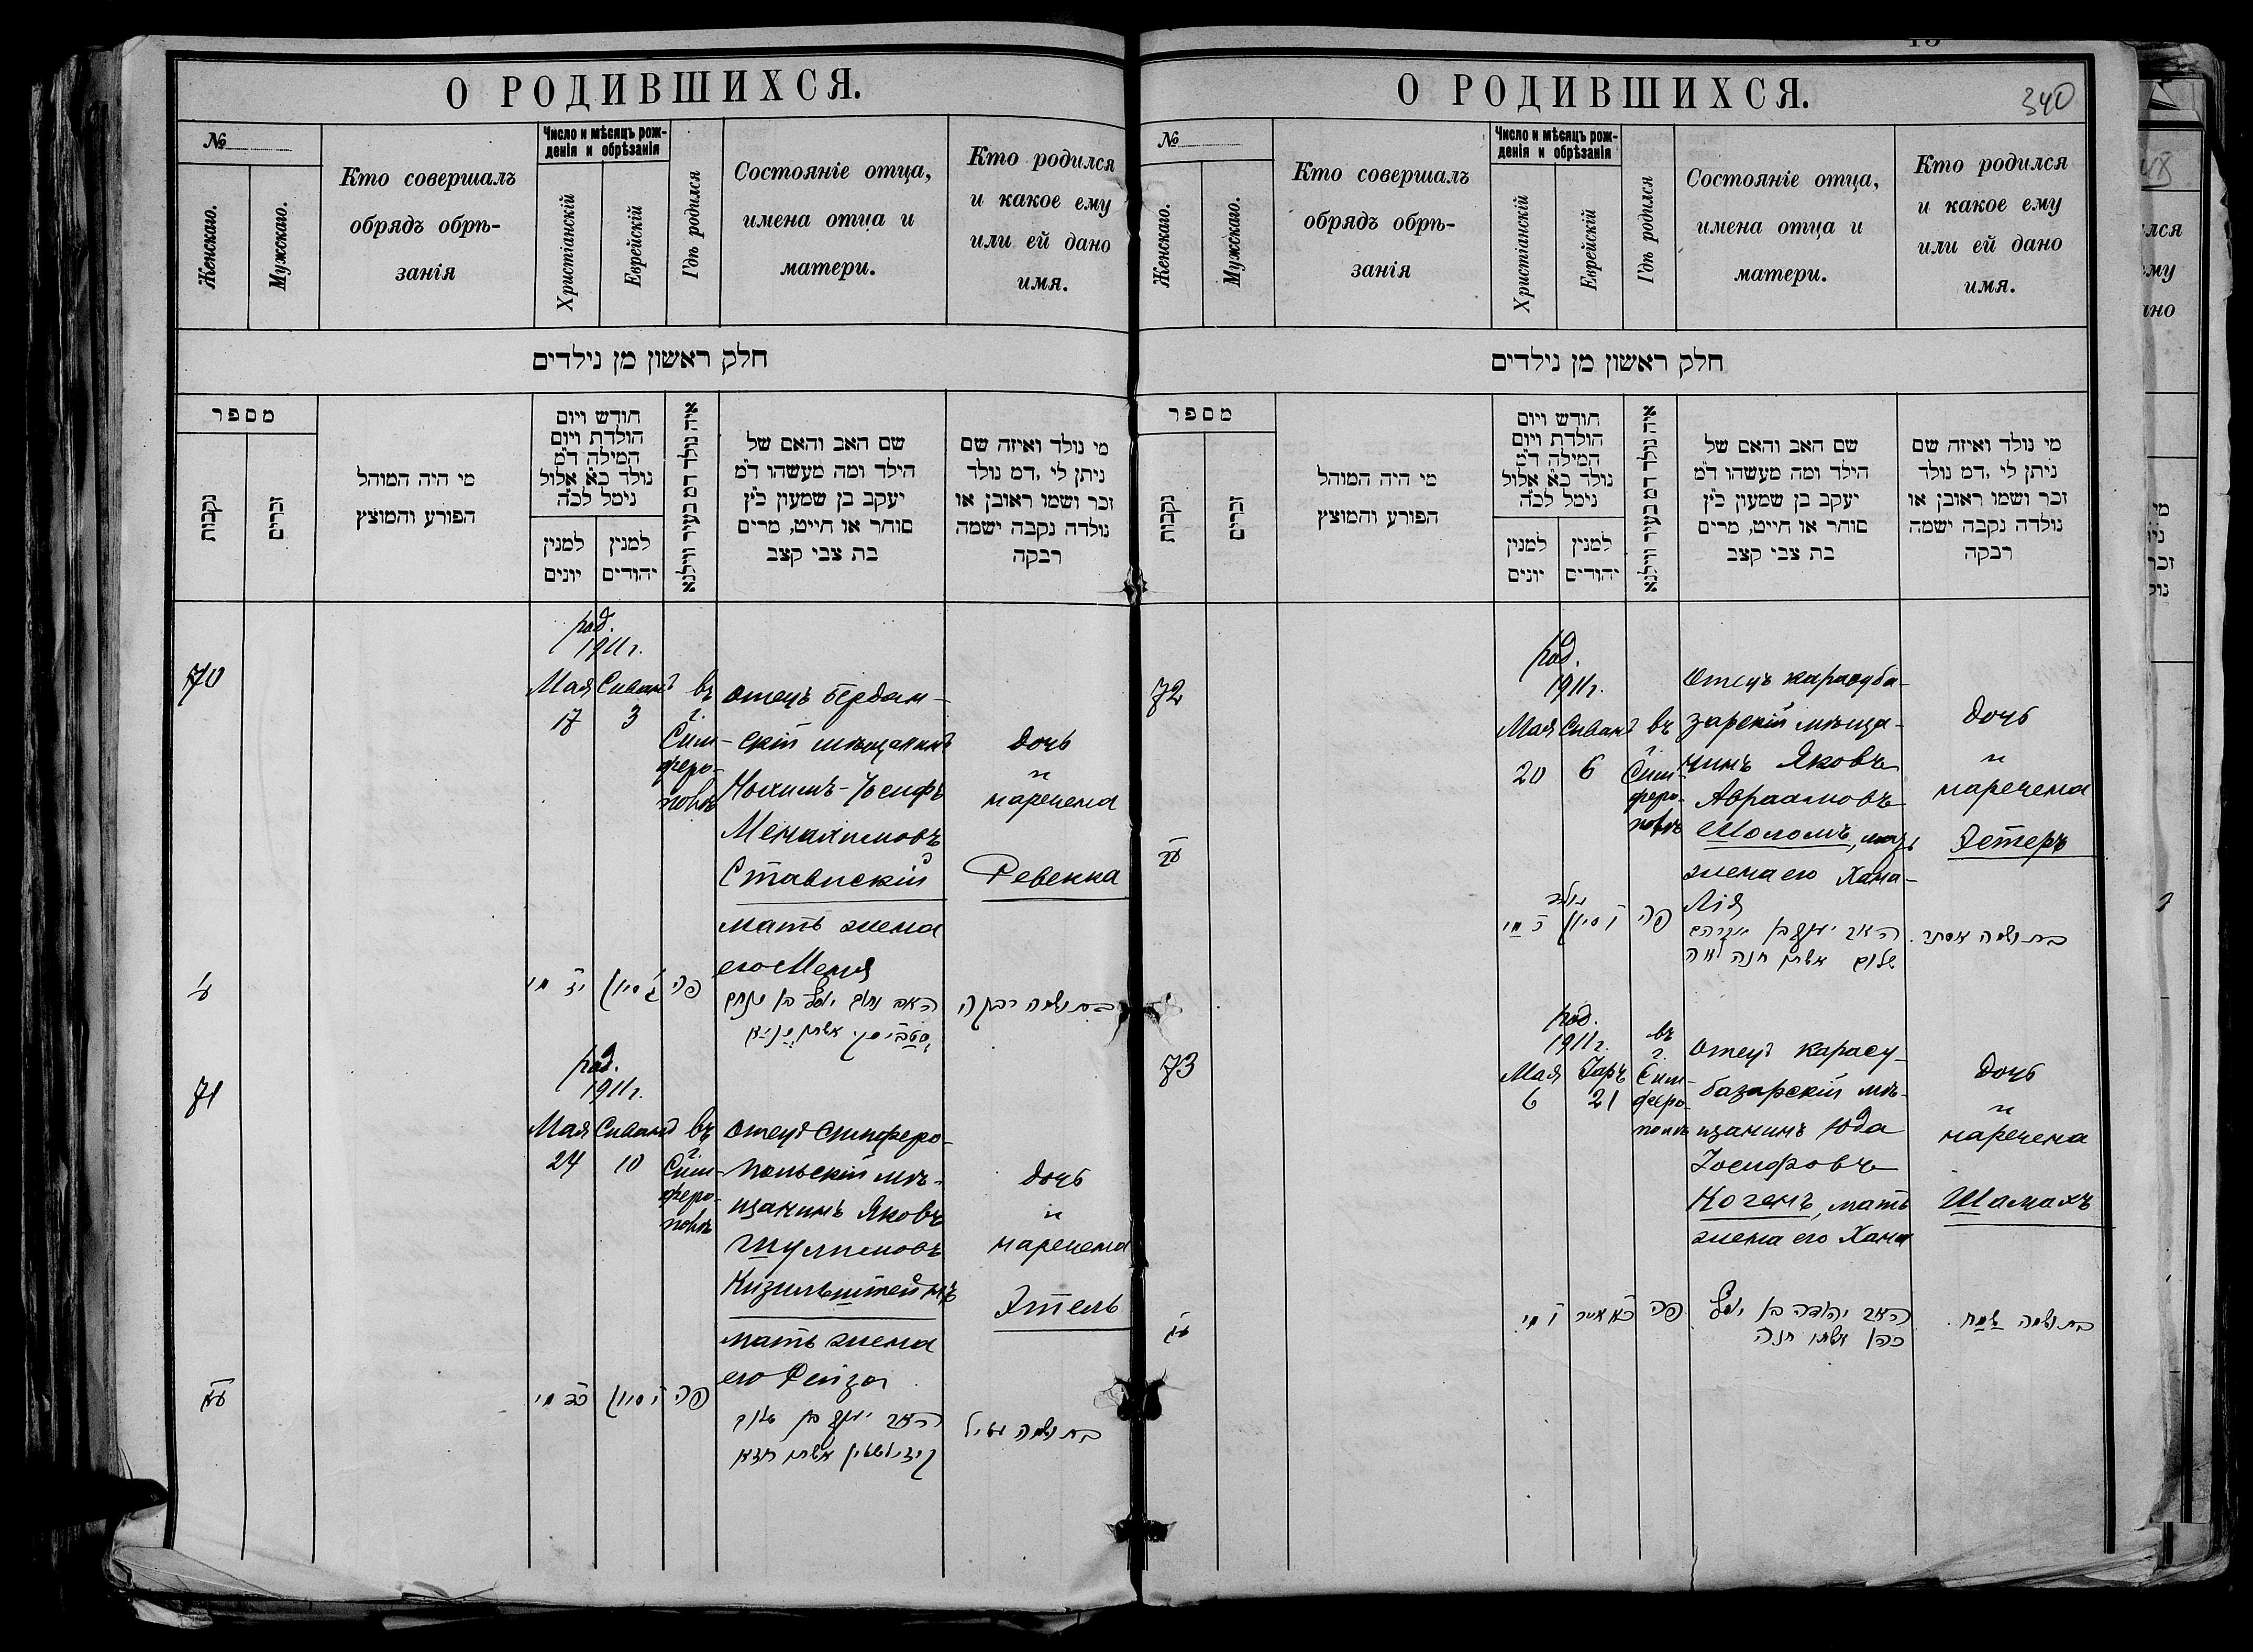 О РОДИВШИХСЯ.
№
Женскаго.
Мужскаго.
Кто совершалъ
обрядъ обрѣ-
занія
Число и мѣсяцъ рож-
денія и обрѣзанія
Христіанскій
Еврейскій
Гдѣ родился
Состояніе отца,
имена отца и
матери.
Кто родился
и какое ему
или ей дано
имя.
חלק ראשון מן נילדים
מספר
נקבות
זכרים
מי היה המוהל
הפורע והמוצץ
חודש ויום
הולדת ויום
המילה ד״מ
נולד כ״א אלול
נימל לכ״ה
למנין
יונים
למנין
יהודים
איה נולד דמ בעיר ווילנא
שם האב והאם של
הילד ומה מעשהו ד״מ
יעקב בן שמעון כ״ץ
סוחר או חייט, מרים
בת צבי קצב
מי נולד ואיזה שם
ניתן לי, דמ נולד
זכר ושמו ראובן או
נולדה נקבה ישמה
רבקה
70
род.
1911 г.
Мая Сиванъ
17 3
въ
г.
Сим-
феро-
полѣ
отецъ Бердян-
скій мѣщанинъ
Нохимъ-Іосифъ
Менахимовъ
Ставискій
мать жена
его Меня
дочь
и
наречена
Ревекка
ע
י״ז מי
ג׳ סיון
פה
האב נחום יוסף בן מנחם
סטביסקי אשתו מניא
בת ושמה רבקה
71
род.
1911 г.
Мая Сиванъ
24 10
въ
г.
Сим-
феро-
полѣ
отецъ Симферо-
польскій мѣ-
щанинъ Яковъ
Шулимовъ
Кизильштейнъ
мать жена
его Рейза
дочь
и
наречена
Этель
ע״א
כ״ד מי
י׳ סיון
פה
האב יעקב בן שלום
קיזילשטיין אשתו רייזא
בת ושמה
О РОДИВШИХСЯ.
340
№
Женскаго.
Мужскаго.
Кто совершалъ
обрядъ обрѣ-
занія
Число и мѣсяцъ рож-
денія и обрѣзанія
Христіанскій
Еврейскій
Гдѣ родился
Состояніе отца,
имена отца и
матери.
Кто родился
и какое ему
или ей дано
имя.
חלק ראשון מן נילדים
מספר
נקבות
זכרים
מי היה המוהל
הפורע והמוצץ
חודש ויום
הולדת ויום
המילה ד״מ
נולד כ״א אלול
נימל לכ״ה
למנין
יונים
למנין
יהודים
איה נולד דמ בעיר ווילנא
שם האב והאם של
הילד ומה מעשהו ד״מ
יעקב בן שמעון כ״ץ
סוחר או חייט, מרים
בת צבי קצב
מי נולד ואיזה שם
ניתן לי, דמ נולד
זכר ושמו ראובן או
נולדה נקבה ישמה
רבקה
72
род.
1911 г.
Мая Сиванъ
20 6
въ
г.
Сим-
феро-
полѣ
отецъ карасуба-
зарскій мѣща-
нинъ Яковъ
Авраамовъ
Шоломъ, мать
жена его Хана-
Лія
дочь
и
наречена
Эстеръ
ע״ב
כ׳ מי
ו׳ סיון
פה
האב יעקב בן אברהם
שלום אשתו חנה לאה
בת ושמה אסתר.
73
род.
1911 г.
Мая Іаръ
6 21
въ
г.
Сим-
феро-
полѣ
отецъ карасу-
базарскій мѣ-
щанинъ Юда
Іосифовъ
Когенъ, мать
жена его Хана
дочь
и
наречена
Шамахъ
ע״ג
ו׳ מי
כ״א אייר
פה
האב יהודה בן יוסף
כהן אשתו חנה
בת ושמה שמח.